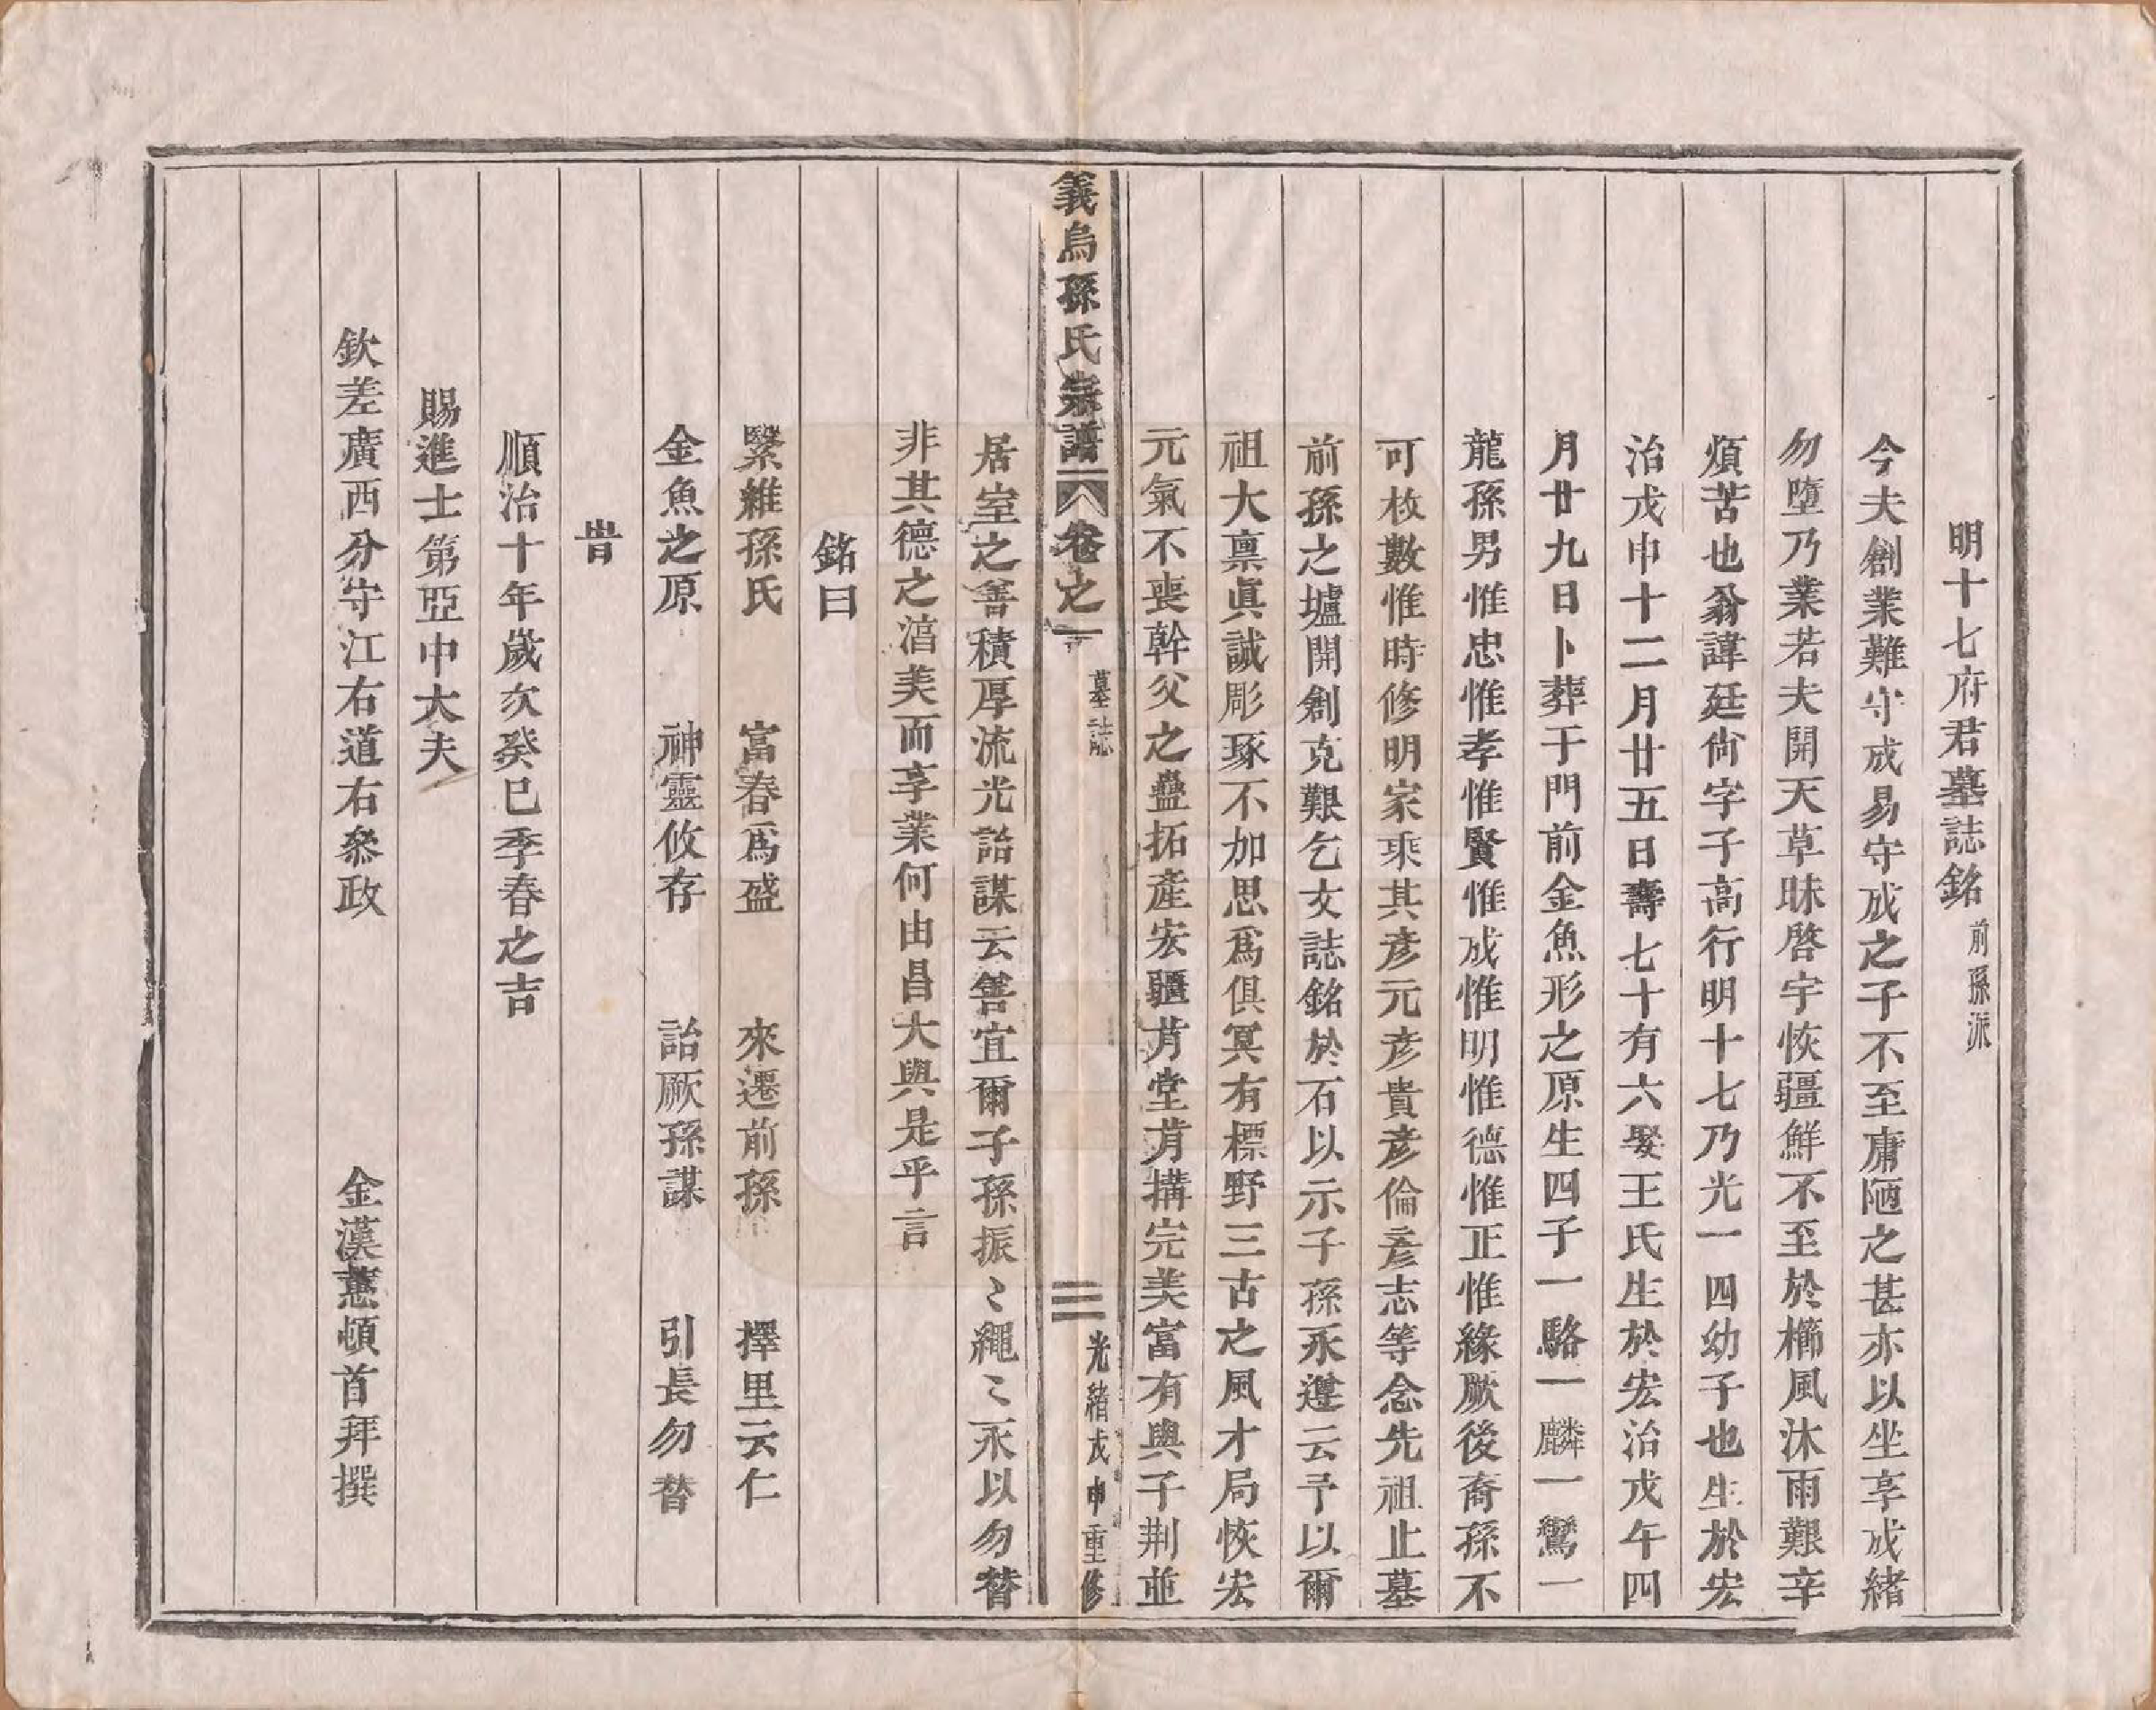 明十七府君墓誌銘 前孫派
今夫創業難守成易守成之子不至庸陋之甚亦以坐享成緒
勿墮乃業若夫開天草昧啓宇恢疆鮮不至於櫛風沐雨艱辛
煩苦也翁諱廷尙字子高行明十七乃光一四幼子也生於宏
治戊申十二月廿五日壽七十有六娶王氏生於宏治戊午四
月廿九日卜葬于門前金魚形之原生四子一駱一麟一鸞一
龍孫男惟忠惟孝惟賢惟成惟明惟德惟正惟緣厥後裔孫不
可枚數惟時修明家乘其彥元彥貴彥倫彥志等念先祖止墓
前孫之墟開創克艱乞文誌銘於石以示子孫永遵云予以爾
祖大稟眞誠彫琢不加思爲俱冥有標野三古之風才局恢宏
元氣不喪幹父之蠱拓產宏疆肯堂肯構完美富有與子荆並
義烏孫氏宗譜 卷之一 墓誌 三 光緒戊申重修
居室之善積厚流光詒謀云善宜爾子孫振〻繩〻永以勿替
非其德之湻美而享業何由昌大與是乎言
銘曰
緊維孫氏 富春爲盛 來遷前孫 擇里云仁
金魚之原 神靈攸存 詒厥孫謀 引長勿替
旹
順治十年歲次癸巳季春之吉
賜進士第亞中大夫
欽差廣西分守江右道右叅政 金漢蕙頓首拜撰